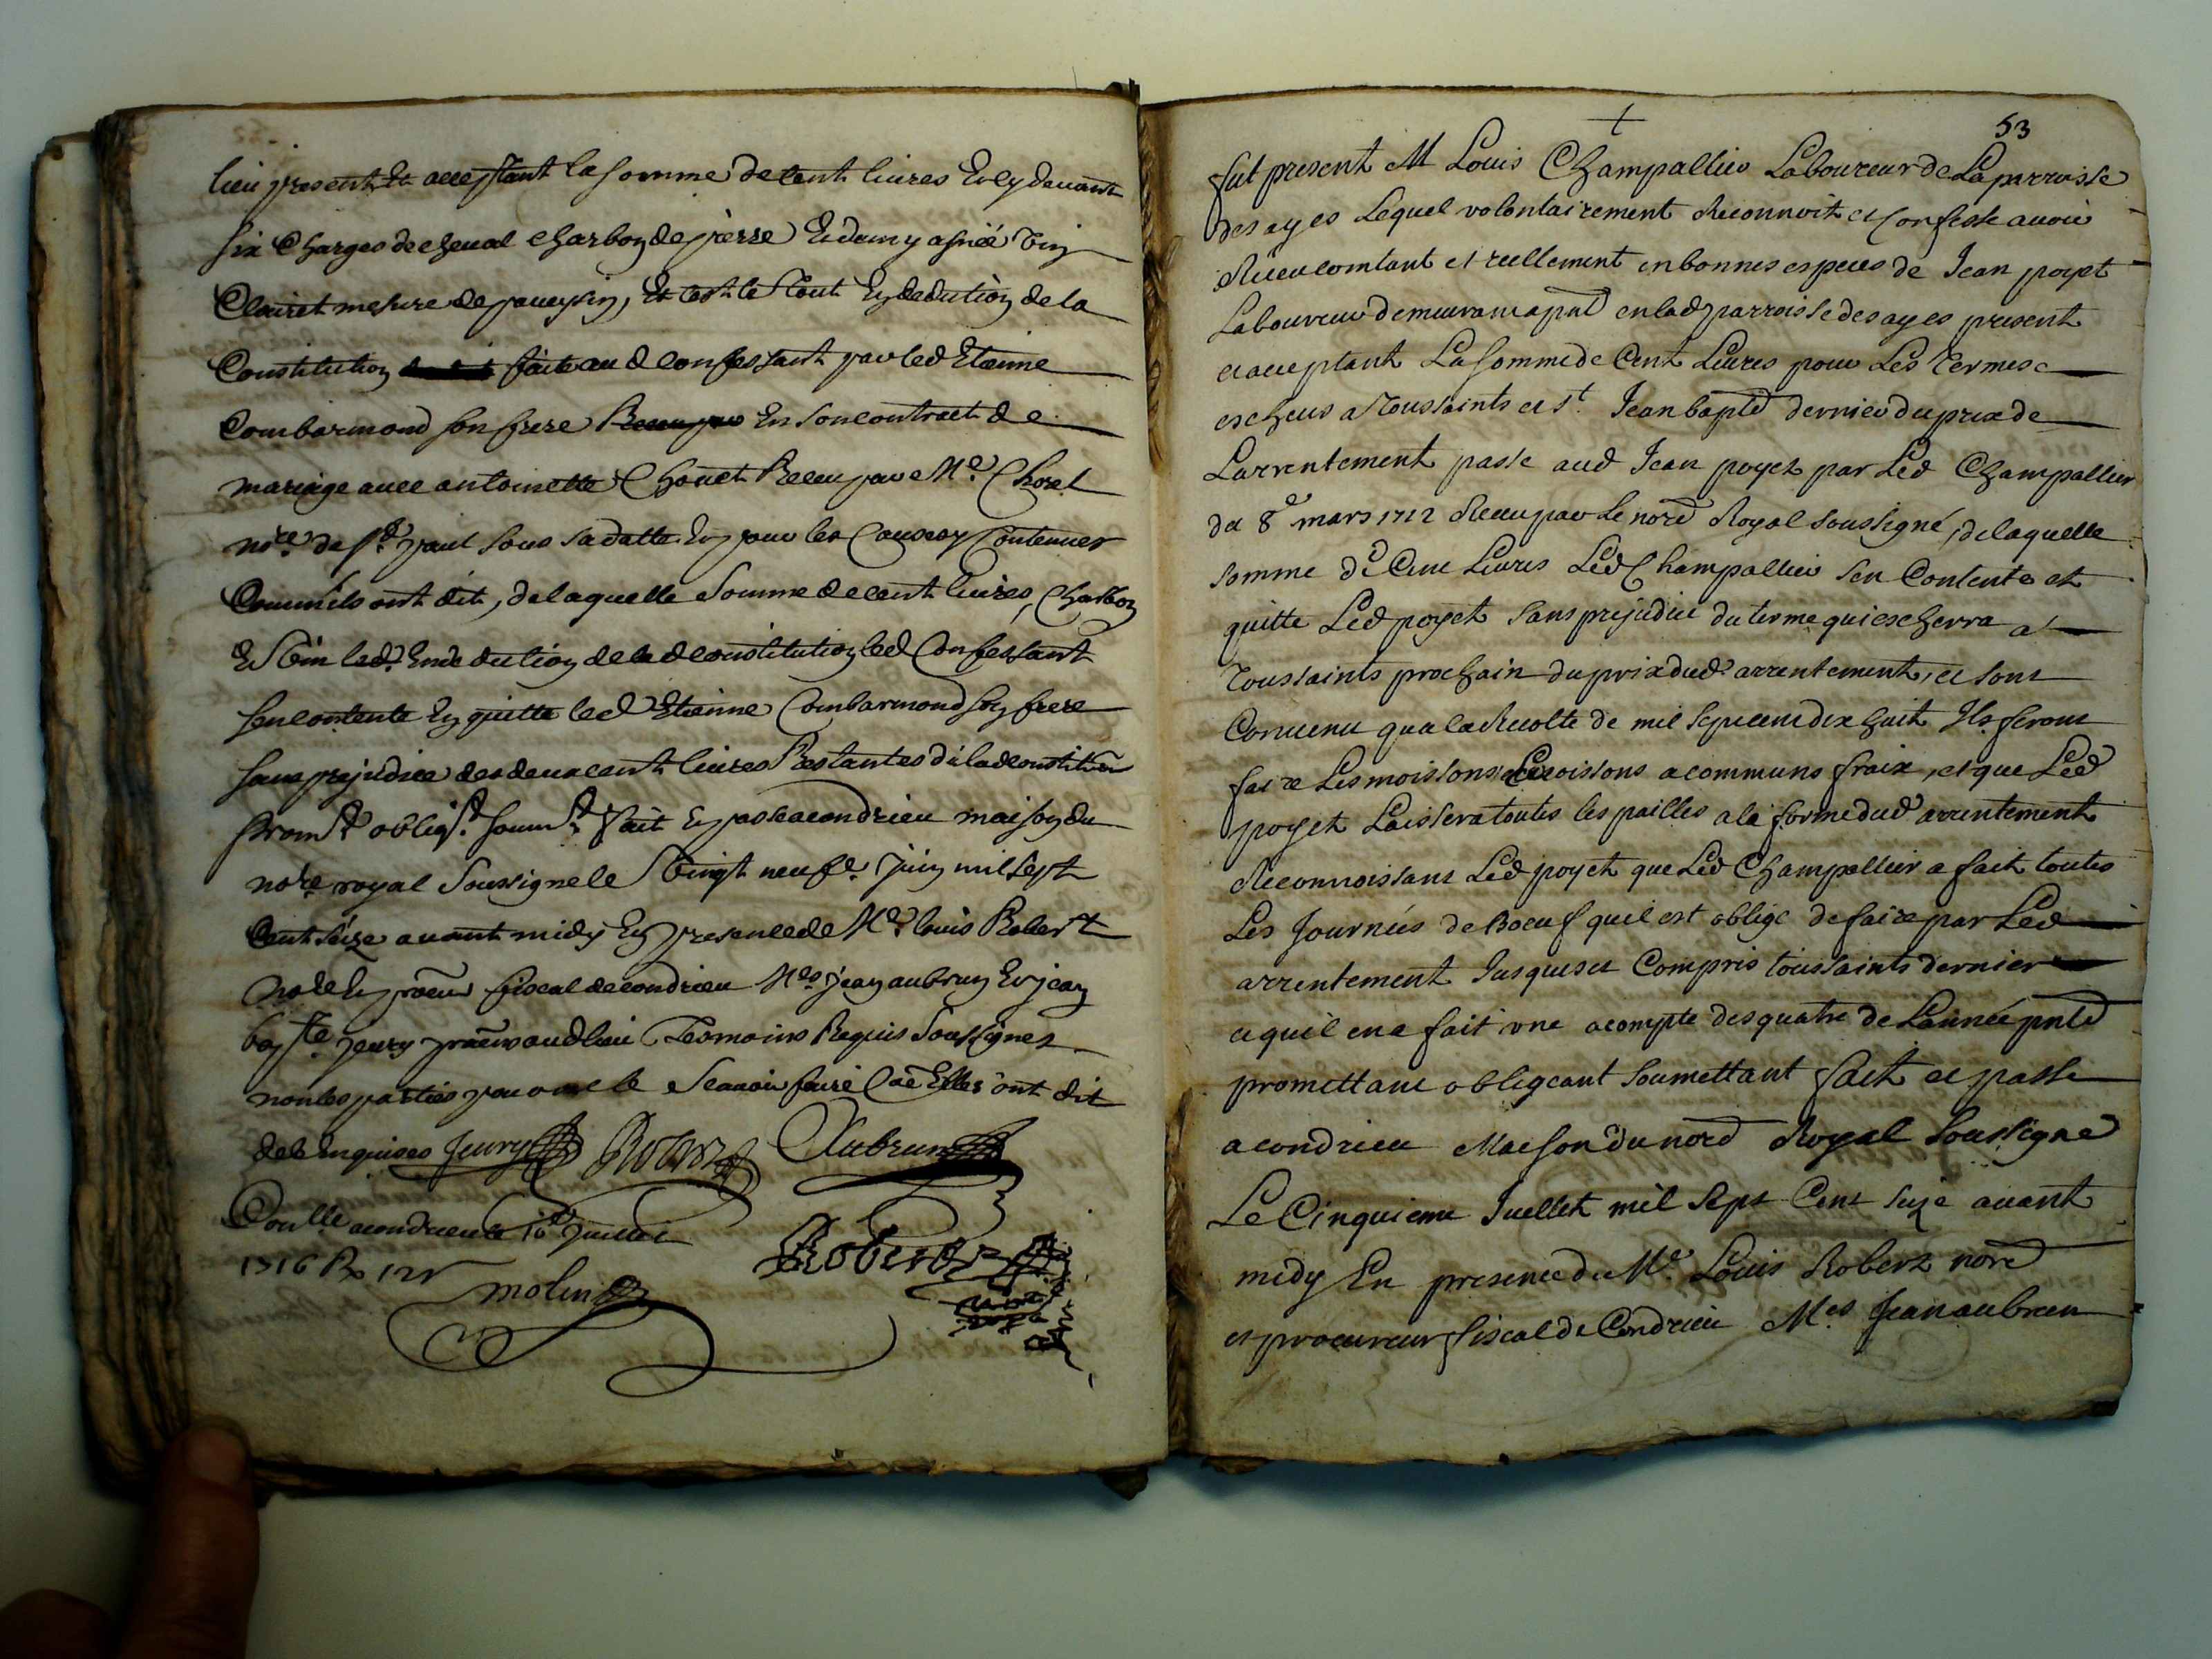 lieu present Et acceptant la somme de cent livres Ev cy devant
six Charges de cheval charbon de pierre Et demy asnée vin
Clairet mesure de  Et c'est le Tout En deduction de la
Constitution faite aud confessant par led Etienne
Combarmond son frere En son contract de
mariage avec antoinette Chouet Receu par Me. Chorel
nore. de st. paul sous sa datte En pour les Causes y Contenues
Comm'ils ont dit, de laquelle Somme de cent livres, Charbon
Et vin led. En deduction de lad constitution led Confessant
sen contente En quitte led Etienne Combarmond son frere
sans prejudice des deux cent livres Restantes de lad constitñ
promt. obligt. soumt. fait Et passe a condrieu maison du
nore royal Soussigne le vingt neufe. juin mil sept
Cent seize avant midy En presence de Me. louis Robert
nore Et procur fiscal de condrieu Mes. jean aubrun Et jean
bapte. jeury procur aud lieu Tesmoins Requis Soussignes
non les parties pour ne le Scavoir faire Coe Elles ont dit
de ce enquises Jeury Robert Aubrun
Conlle a condrieu le 10e Juillet
1716 R 12s
molin Robert
53
fut present M Louis Champallier Laboureur de La parroisse
des ayes Lequel volontairement Reconnoit et Confesse avoir
Receu comtant et reellement en bonnes especes de Jean poyet
Laboureur demeurant apnt en lad parroisse des ayes present
et acceptant La somme de Cent Livres pour Les Termes
escheus a Toussaints et st. Jean bapte dernier du prix de
Larrentement passe aud Jean poyet par Led Champallier
du 8e mars 1712 Receu par Le nore Royal soussigné, de laquelle
somme de Cent Livres Led Champallier sen Contente et
quitte Led poyet sans prejudice du terme qui escherra a
Toussaints prochain du prix dud arrentement, et sont
Convenu qua la Recolte de mil sept cent dix huit Ils feront
faire Les moissons a communs fraix, et que Led
poyet Laissera toutes les pailles a la forme dud arrentement
Reconnoissant Led poyet que Led Champallier a fait toutes
Les Journées de Boeuf quil est oblige de faire par Led
arrentement Jusques et Compris toussaints dernier
et quil en a fait une acompte des quatre de Lannée pnte
promettant obligeant soumettant fait et passe
a condrieu Maison du nore Royal soussigne
Le Cinquieme Juellet mil sept Cent seize avant
midy En presence de Me. Louis Robert nore
et procureur fiscal de Condrieu Mes Jean aubrun